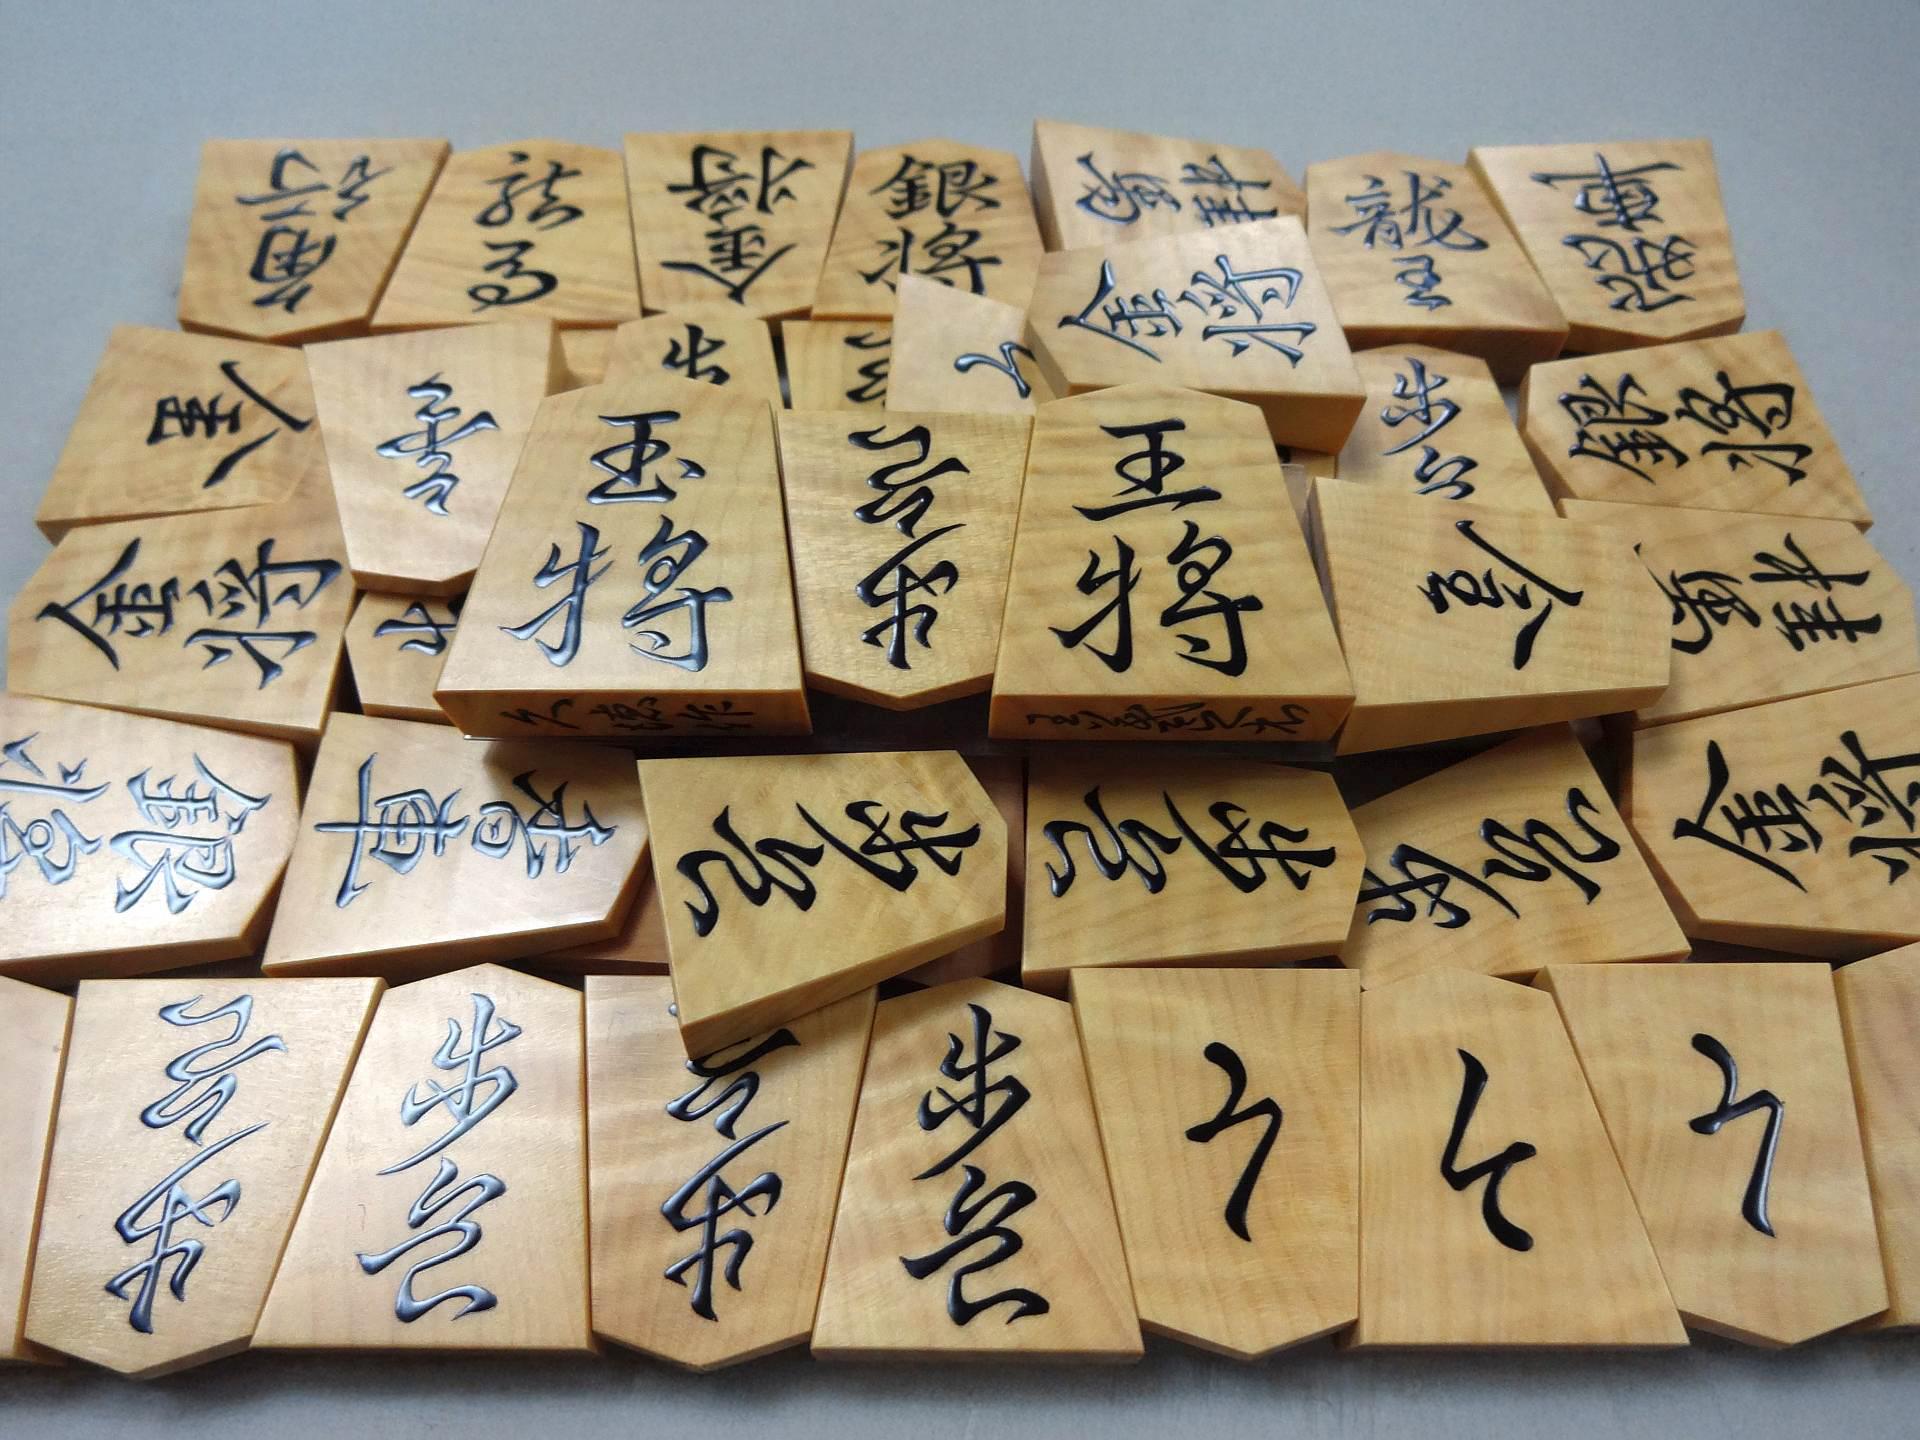 角行
龍馬
金将
銀将
桂馬
龍王
飛車
金将
全
香
歩
玉将
歩兵
王将
歩兵
銀将
金将
全
桂馬
銀将
香車
歩兵
歩兵
歩兵
金将
歩兵
歩兵
歩兵
歩兵
と
と
と